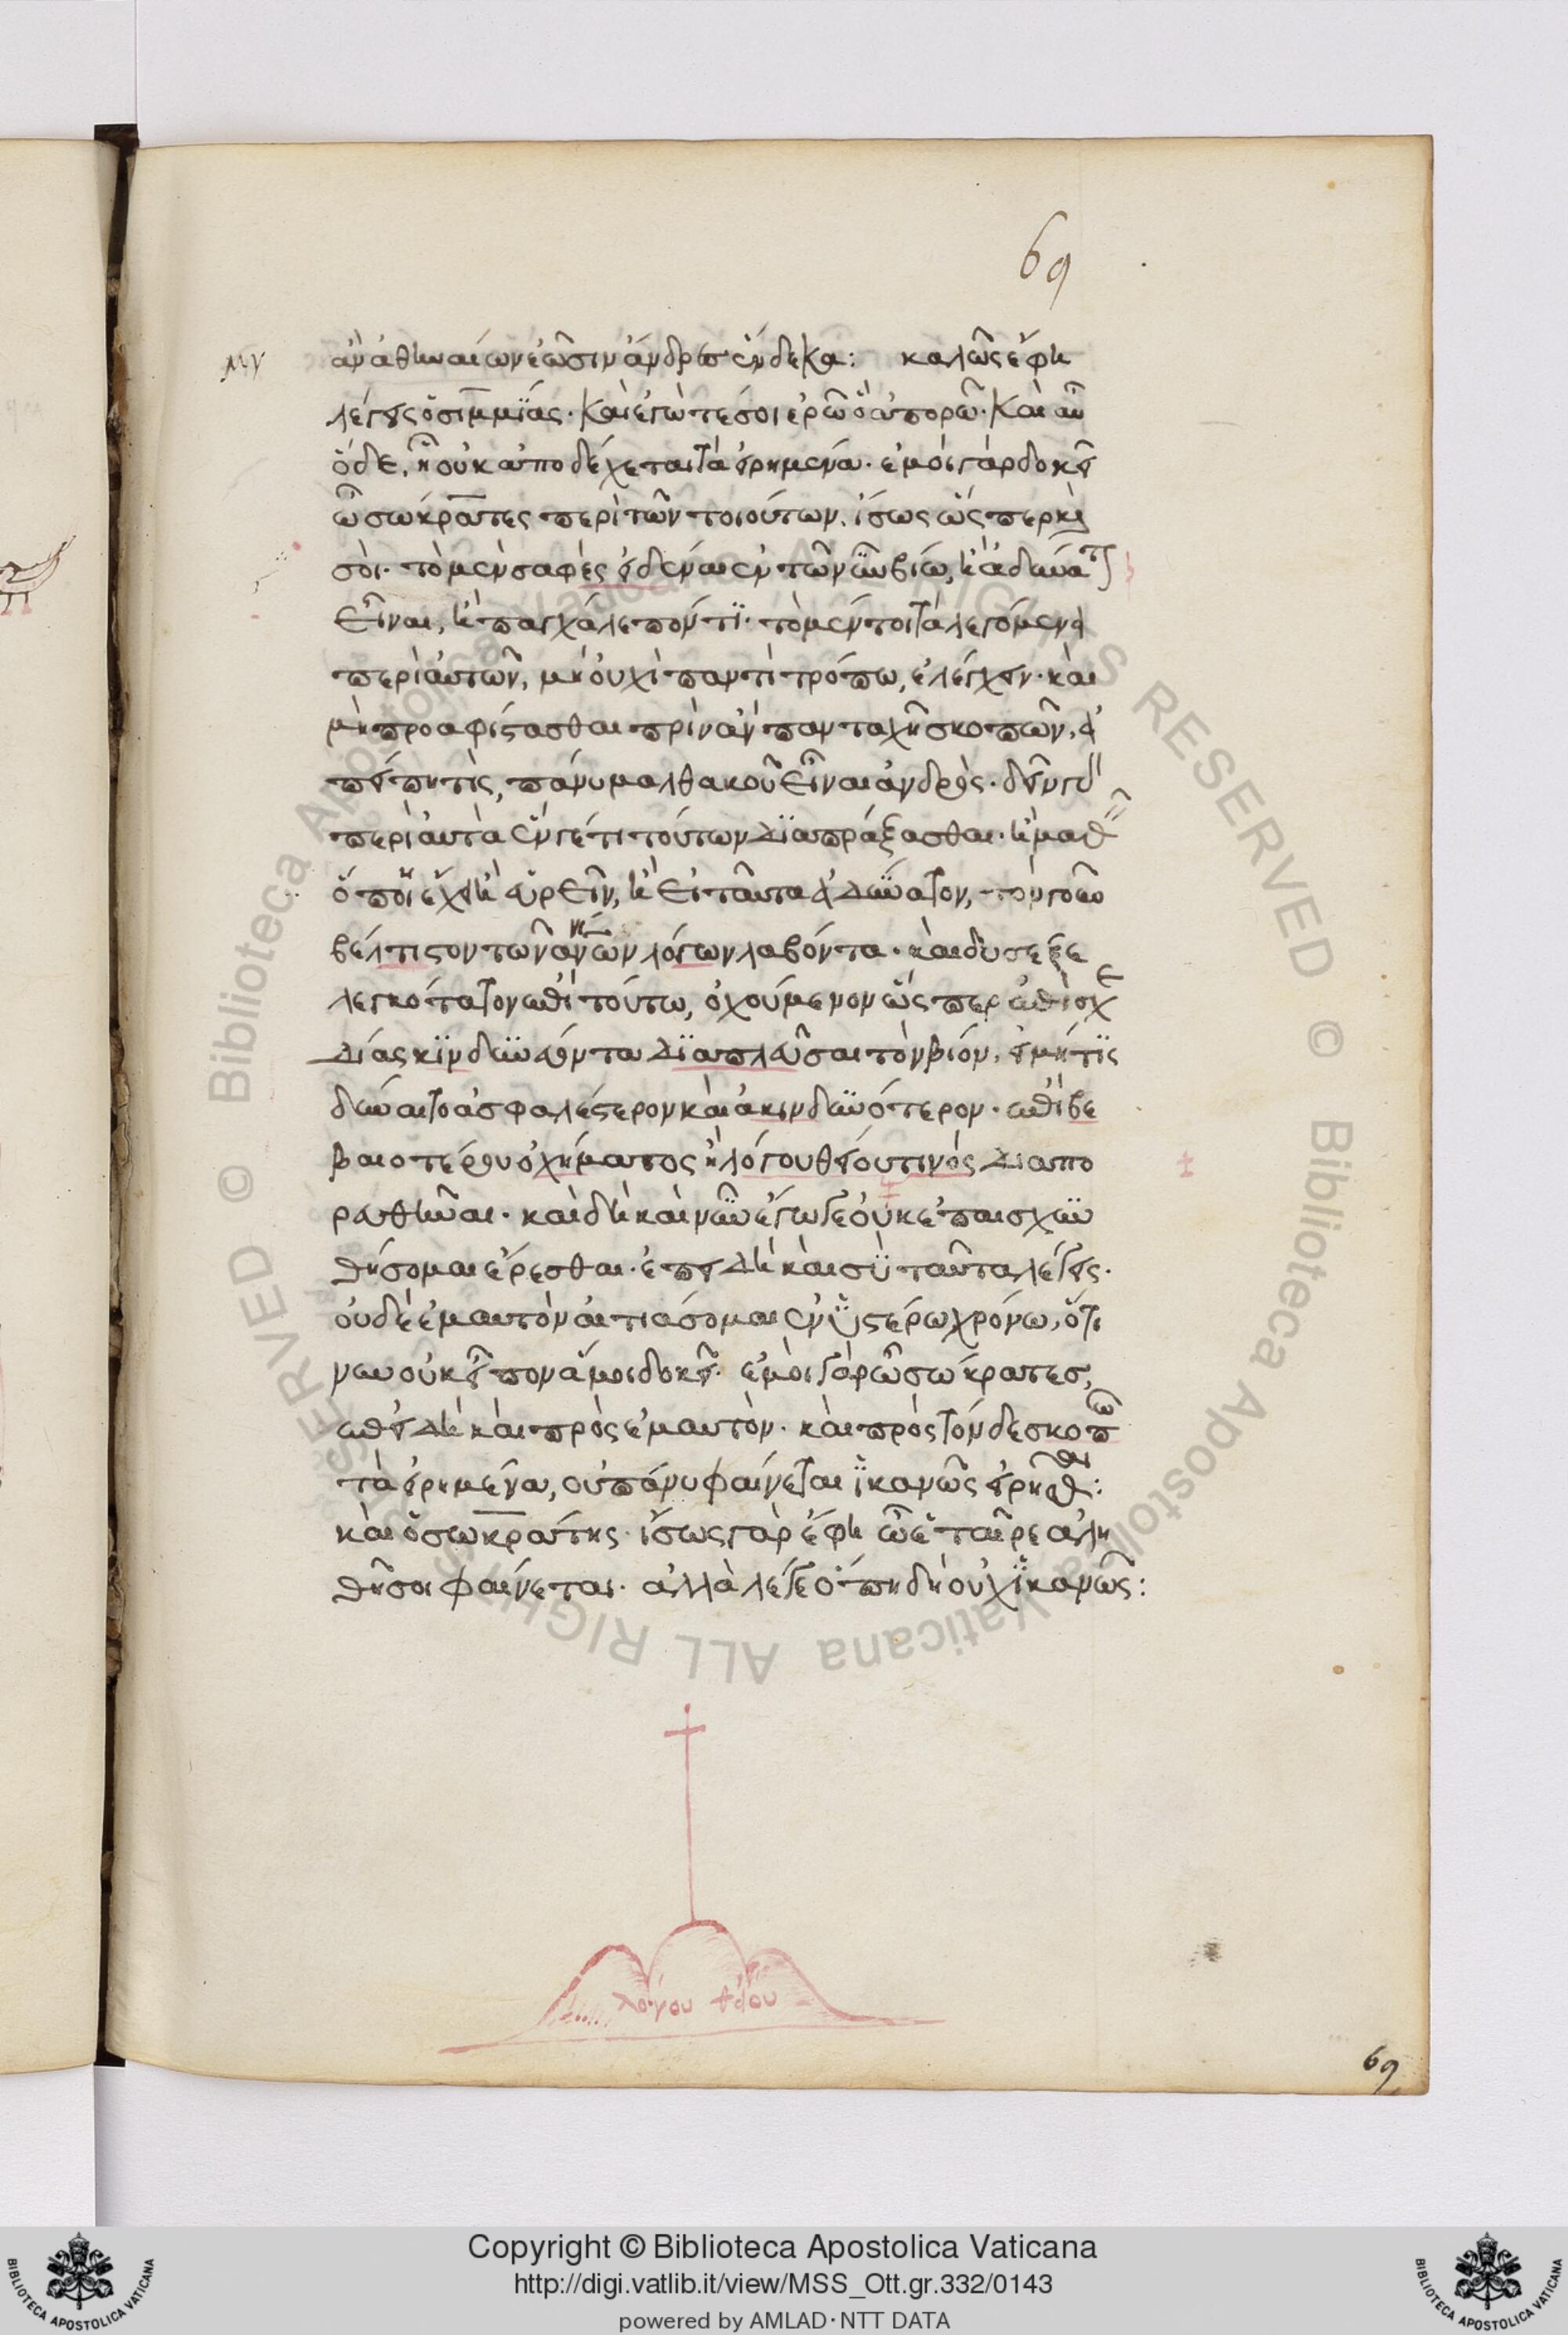 69
ἂν ἀθηναίων ἐῶσιν ἄνδρες ἕνδεκα: καλῶς ἔφη
λέγεις ὁ σιμμίας· καὶ ἐγώ τέ σοι ἐρῶ ὃ ἀπορῶ· καὶ αὖ
ὅδε, ἧ οὐκ ἀποδέχεται τὰ εἰρημένα· ἐμοὶ γὰρ δοκεῖ
ὦ σώκρατες περὶ τῶν τοιούτων, ἴσως ὥσπερ καὶ
σοί· τὸ μὲν σαφὲς εἰδέναι ἐν τῷ νῦν βίω, ἢ ἀδύνατον
εἶναι, ἢ παγχάλεπόν τι· τὸ μέντοι τὰ λεγόμενα
περὶ αὐτῶν, μὴ οὐχὶ παντὶ τρόπω, ἐλέγχειν· καὶ
μὴ προαφίστασθαι πρὶν ἂν πανταχῆ σκοπῶν, ἀ
πείπη τὶς, πάνυ μαλθακοῦ εἶναι ἀνδρὸς· δεῖν γὰρ
περὶ αὐτὰ ἕν γέ τι τούτων διαπράξασθαι· ἢ μαθεῖν
ὅποι ἔχει ἢ εὑρεῖν, ἢ εἰ ταῦτα ἀδύνατον, τὸν γοῦν
βέλτιστον τῶν ἀνίνων λόγων λαβόντα· καὶ δυσεξε
λεγκότατον ἐπὶ τούτω, ὀχούμενον ὥσπερ ἐπὶ σχε
δίας κινδυνεύοντα διαπλεῦσαι τὸν βίον, εἰ μή τις
δύναιτο ἀσφαλέστερον καὶ ἀκινδυνότερον· ἐπὶ βε
βαιοτέρου ὀχήματος ἢ λόγου θείου τινὸς διαπο
ρευθῆναι· καὶ δὴ καὶ νῦν ἔγωγε οὐκ ἐπαισχυν
θήσομαι ἐρέσθαι· ἐπειδὴ καὶ σὺ ταῦτα λέγεις·
οὐδὲ ἐμαυτὸν αἰτιάσομαι ἐν ὑστέρω χρόνω, ὅτι
νῦν οὐκ εἶπον ἅ μοι δοκεῖ· ἐμοὶ γὰρ ὦ σώκρατες,
ἐπειδὴ καὶ πρὸς ἐμαυτὸν· καὶ πρὸς τόνδε σκοπῶ
τὰ εἰρημένα, οὐ πάνυ φαίνεται ἱκανῶς εἰρῆσθαι:
καὶ ὁ σωκράτης· ἴσως γὰρ ἔφη ὦ ἑταῖρε ἀλη
θῆ σοι φαίνεται· ἀλλὰ λέγε ὅπη δὴ οὐχ ἱκανῶς:
λόγου θείου
69
Copyright © Biblioteca Apostolica Vaticana
http://digi.vatlib.it/view/MSS_Ott.gr.332/0143
powered by AMLAD·NTT DATA
BIBLIOTECA APOSTOLICA VATICANA
BIBLIOTECA APOSTOLICA VATICANA
© Biblioteca Apostolica Vaticana ALL RIGHTS RESERVED © Biblioteca Apostolica Vaticana ALL RIGHTS RESERVED